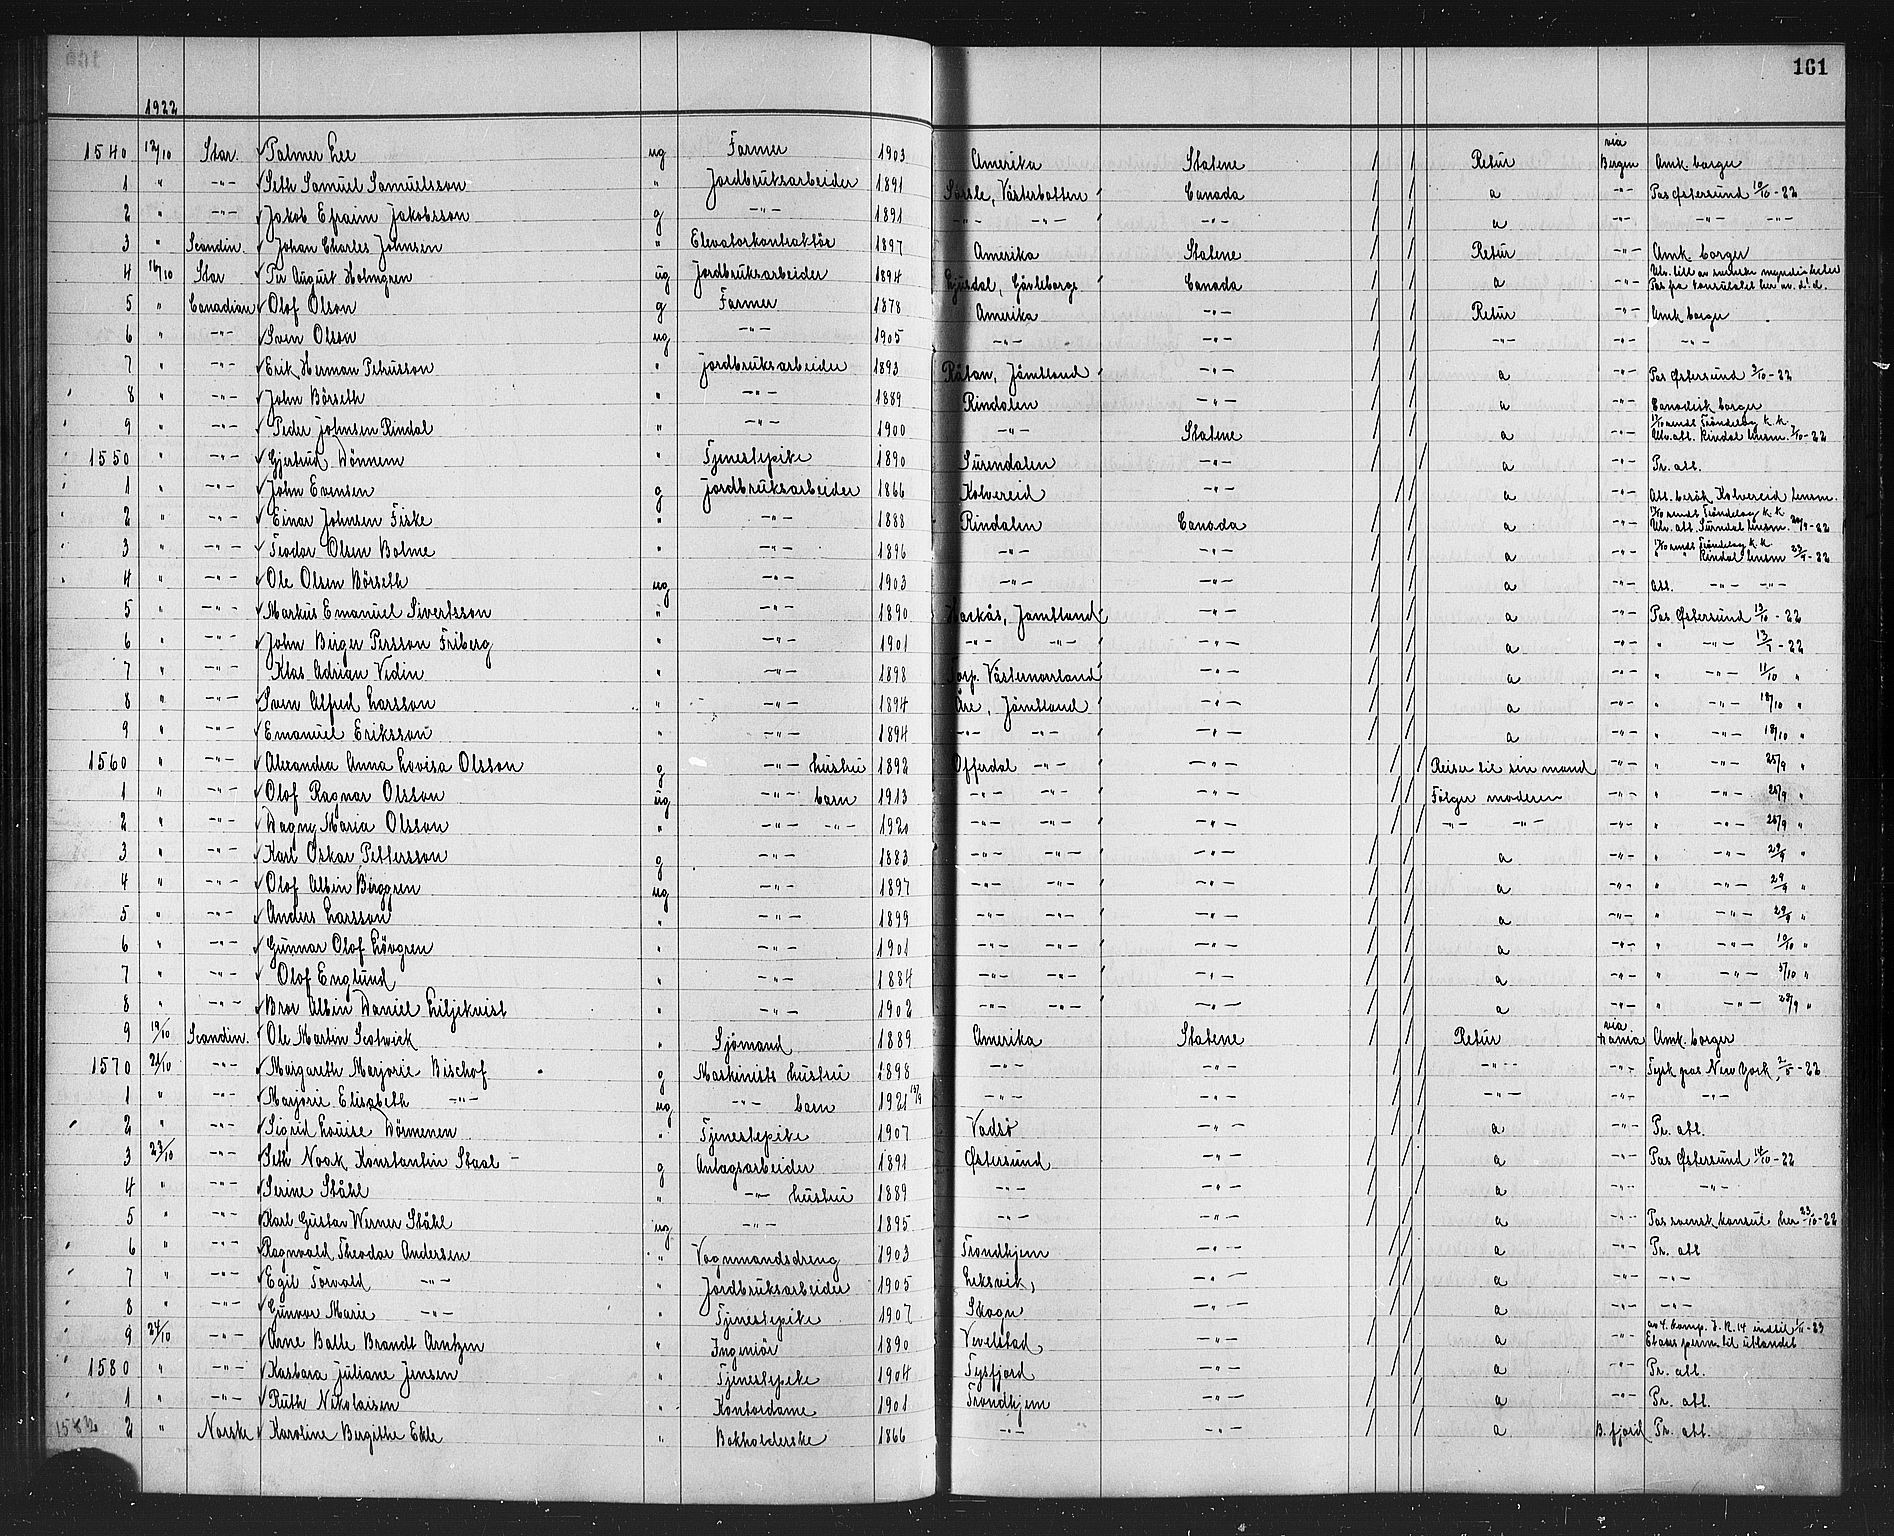 161
1922
1540 12/10 Star. Palmer Lee ug Farmer 1903 Amerika Statene Retur via Bergen Amk. borger
1 " -"- Seth Samuel Samuelsson " Jordbruksarbeider 1891 Sorsle, Västerbotten Canada a -"- Pas Østersund 10/10-22
2 " -"- Jakob Efraim Jakobsson g -"- 1891 -"- -"- -"- a -"- -"- -"-
3 " Scandin. Johan Charles Johnsen " Elevatorkontraktör 1897 Amerika Statene Retur -"- Amk. borger
4 16/10 Star Per August Holmgren ug Jordbruksarbeider 1894 Ljusdal, Gävleborgs Canada a -"- Utv. till. av svenske myndigheter Pas fra konsulatet her av d. d.
5 " Canadian Olof Olson g Farmer 1878 Amerika -"- Retur Amk borger
6 " -"- Sven Olson ug -"- 1905 -"- -"- -"- -"- -"-
7 " -"- Erik Herman Petrusson " jordbruksarbeider 1893 Rätan, Jämtland -"- a -"- Pas Østersund 3/10-22
8 " -"- John Börseth " -"- 1889 Rindalen -"- a -"- Canadisk borger
9 " -"- Peder Johnsen Rindal " -"- 1900 -"- Statene a -"- 17/10 sendt Tröndelag k. k. Utv. att. Rindal lensm. 7/10-22
1550 " -"- Gjertrud Dönnem " Tjenestepike 1890 Surendalen -"- a -"- Pr. att.
1 " -"- John Evensen g jordbruksarbeider 1866 Kolvereid -"- a -"- Att. besök Kolvereid lensm.
2 " -"- Einar Johnsen Fiske " -"- 1888 Rindalen Canada a -"- 17/10 sendt Tröndelag k. k. Utv. att. Surndal lensm. 20/9-22
3 " -"- Teodor Olsen Bolme " -"- 1896 -"- -"- a -"- 17/10 sendt Tröndelag k. k. Rindal lensm 22/9-22
4 " -"- Ole Olsen Börseth ug -"- 1903 -"- -"- a -"- Att. -"- -"-
5 " -"- Markus Emanuel Sivertsson " -"- 1890 Hackås, Jamtland -"- a -"- Pas Østersund 13/10-22
6 " -"- John Birger Persson Friberg " -"- 1901 -"- -"- -"- a -"- " -"- 13/7-22
7 " -"- Klas Adrian Vidin " -"- 1898 Torp. Västernorrland -"- a -"- " -"- 11/10 "
8 " -"- Sven Alfred Larsson " -"- 1894 Åre, Jämtland -"- a -"- " -"- 18/10 "
9 " -"- Emanuel Eriksson " -"- 1894 -"- -"- -"- a -"- " -"- 18/10 "
1560 " -"- Alexandra Anna Lovisa Olsson g -"- hustru 1892 Offerdal -"- -"- Reiser til sin mand -"- " -"- 25/9 "
1 " -"- Olof Ragnar Olsson ug -"- barn 1913 -"- -"- -"- Fölger moderen -"- " -"- 25/9 "
2 " -"- Dagny Maria Olsson " -"- -"- 1920 -"- -"- -"- -"- -"- -"- " -"- 25/9 "
3 " -"- Karl Oskar Pettersson g -"- 1883 -"- -"- -"- a -"- " -"- 29/9 "
4 " -"- Olof Albin Berggren ug -"- 1897 -"- -"- -"- a -"- " -"- 29/9 "
5 " -"- Anders Larsson " -"- 1899 -"- -"- -"- a -"- " -"- 29/9 "
6 " -"- Gunnar Olof Lövgren " -"- 1901 -"- -"- -"- a -"- " -"- 10/10 "
7 " -"- Olof Englund " -"- 1884 -"- -"- -"- a -"- " -"- 5/10 "
8 " -"- Bror Albin Daniel Liljekvist " -"- 1902 -"- -"- -"- a -"- " -"- 28/9 "
9 19/10 Scandin. Ole Martin Scotwick " Sjömand 1889 Amerika Statene Retur via Kania Amk. borger
1570 21/10 -"- Margareth Marjorie Bischof g Maskinists hustru 1898 -"- -"- -"- -"- Tysk pas New York, 2/5-22
1 " -"- Marjorie Elisabeth -"- ug -"- barn 1921 -"- -"- -"- -"- -"-
2 " -"- Sigrid Louise Dönnenen " Tjenestepike 1907 Vadsö -"- a -"- Pr. att.
3 23/10 -"- Seth Noak Konstantin Staal g Anlagsarbeider 1891 Østersund -"- a -"- Pas Østersund 14/10-22
4 " -"- Serine Ståhl " -"- hustru 1889 -"- -"- a -"- -"-
5 " -"- Karl Gustav Werner Ståhl ug -"- 1895 -"- -"- a -"- Pas svensk konsul her 23/10-22
6 " -"- Ragnvald Theodor Andersen " Vognmandsdreng 1903 Trondhjem -"- a -"- Pr. att
7 " -"- Egil Torvald -"- " Jordbruksarbeider 1905 Leksvik, -"- a -"- -"-
8 " -"- Gunvor Marie -"- " Tjenestepike 1907 Skogn -"- a -"- -"-
9 24/10 -"- Arne Balle Brandt Arntzen " Ingeniör 1890 Vevelstad -"- a -"- av 4. komp. I. R. 14 indtil 1/11-23 Et aars perm. til utlandet
1580 " -"- Kasbara Juliane Jensen " Tjenestepike 1904 Tysfjord -"- a -"- Pr. att.
1 " -"- Ruth Nikolaisen " Kontordame 1901 Trondhjem -"- a -"- Pr. att.
1582 2 " Norske Karoline Bergithe Ekle " Bokholderske 1866 -"- -"- a B. fjord Pr. att.